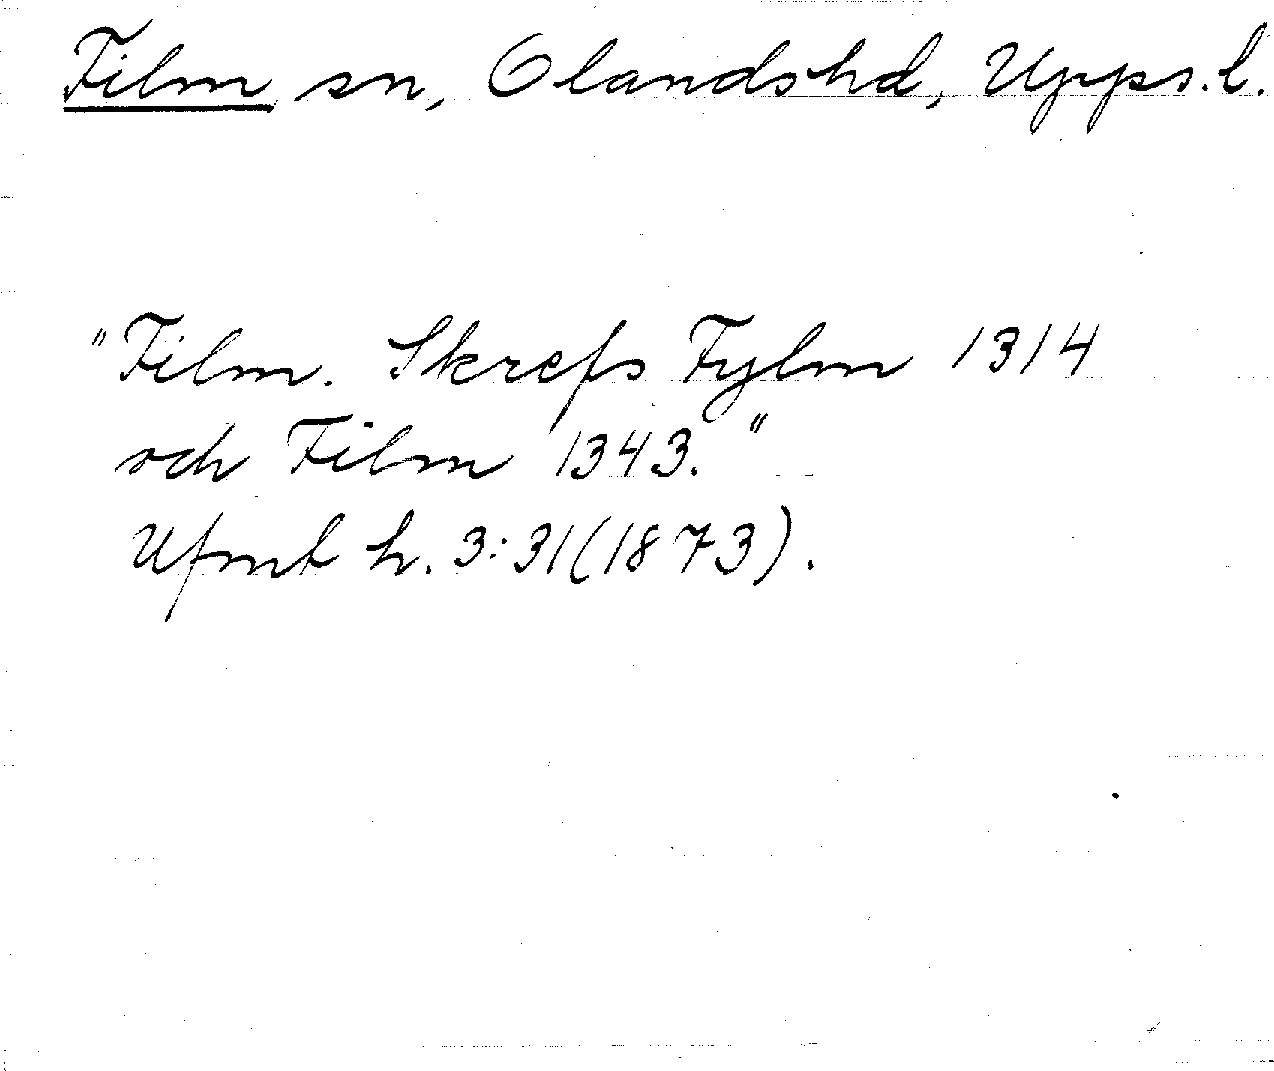 Film sn, Olandshd, Upps. l.
"Film. Skrefs Fylm 1314
och Film 1343."
Ufmt h. 3:31(1873).